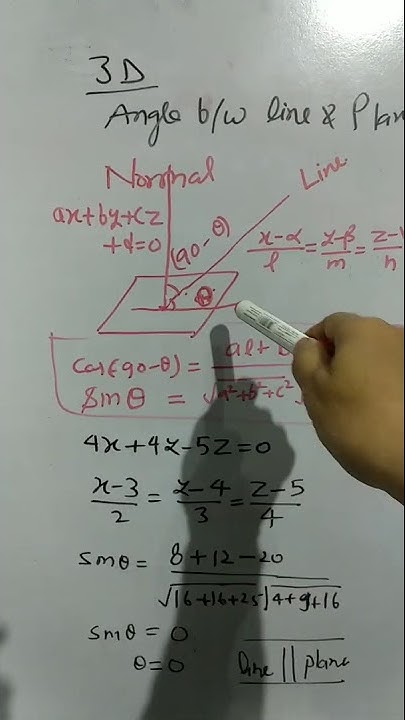 3D
Angle b/w line & Plan
Normal
Line
ax+by+cz
+d=0
(90-θ)
x-α/l = y-β/m = z-
θ
Cos(90-θ) = al+
Sinθ = √a²+b²+c²
4x+4y-5z=0
x-3/2 = y-4/3 = z-5/4
Sinθ = 8+12-20/√16+16+25√4+9+16
Sinθ = 0
θ=0
Line || plane